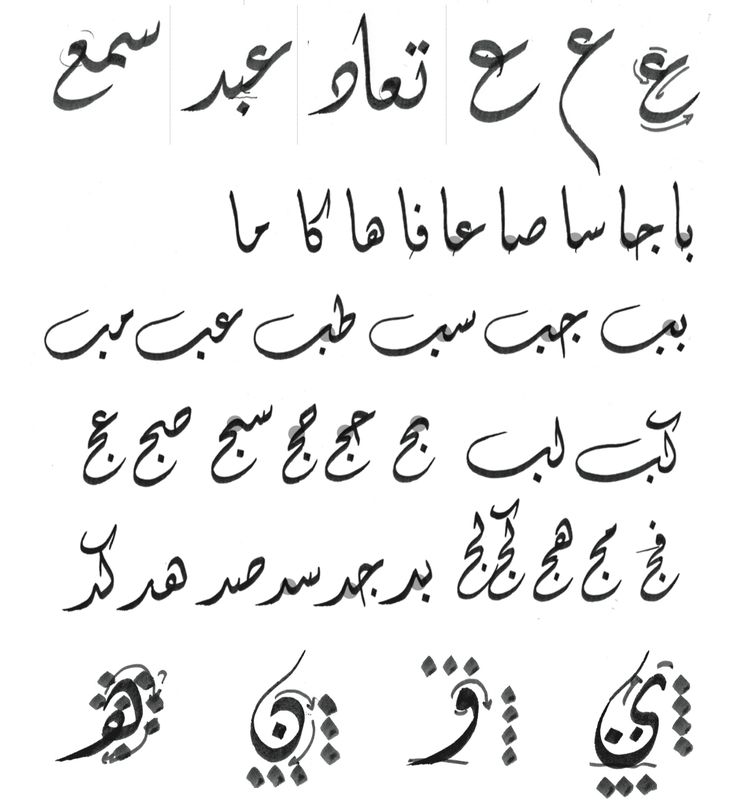 ع ع ع تعاد عبد سمع
با جا سا صا عا فا ها كا ما
بب جب سب طب عب مب
كب لب بج حج سج صج عج
فج مج هج كج لج بد جد سد صد هد كد
ي و ن هو